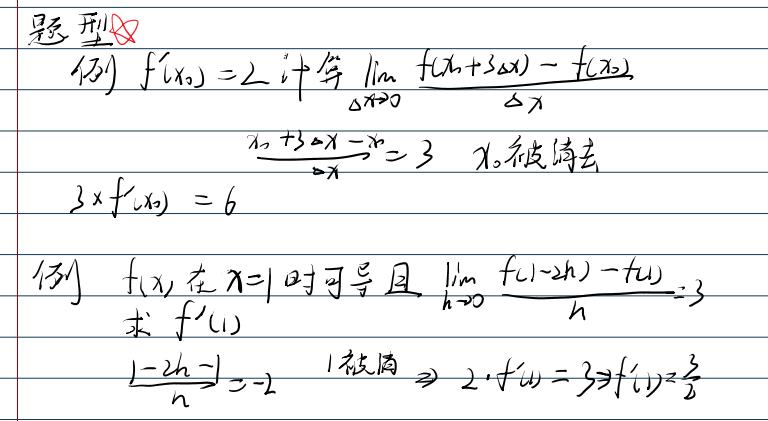 题型☆
例 f'(x₀) = 2 计算 lim_{Δx→0} \frac{f(x₀+3Δx) - f(x₀)}{Δx}
\frac{x₀+3Δx-x₀}{Δx} = 3 x₀被消去
3×f'(x₀) = 6
例 f(x)在x=1时可导且 lim_{h→0} \frac{f(1-2h) - f(1)}{h} = 3
求 f'(1)
\frac{1-2h-1}{h} = -2 1被消 ⇒ 2·f'(1) = 3 ⇒ f'(1) = \frac{3}{2}